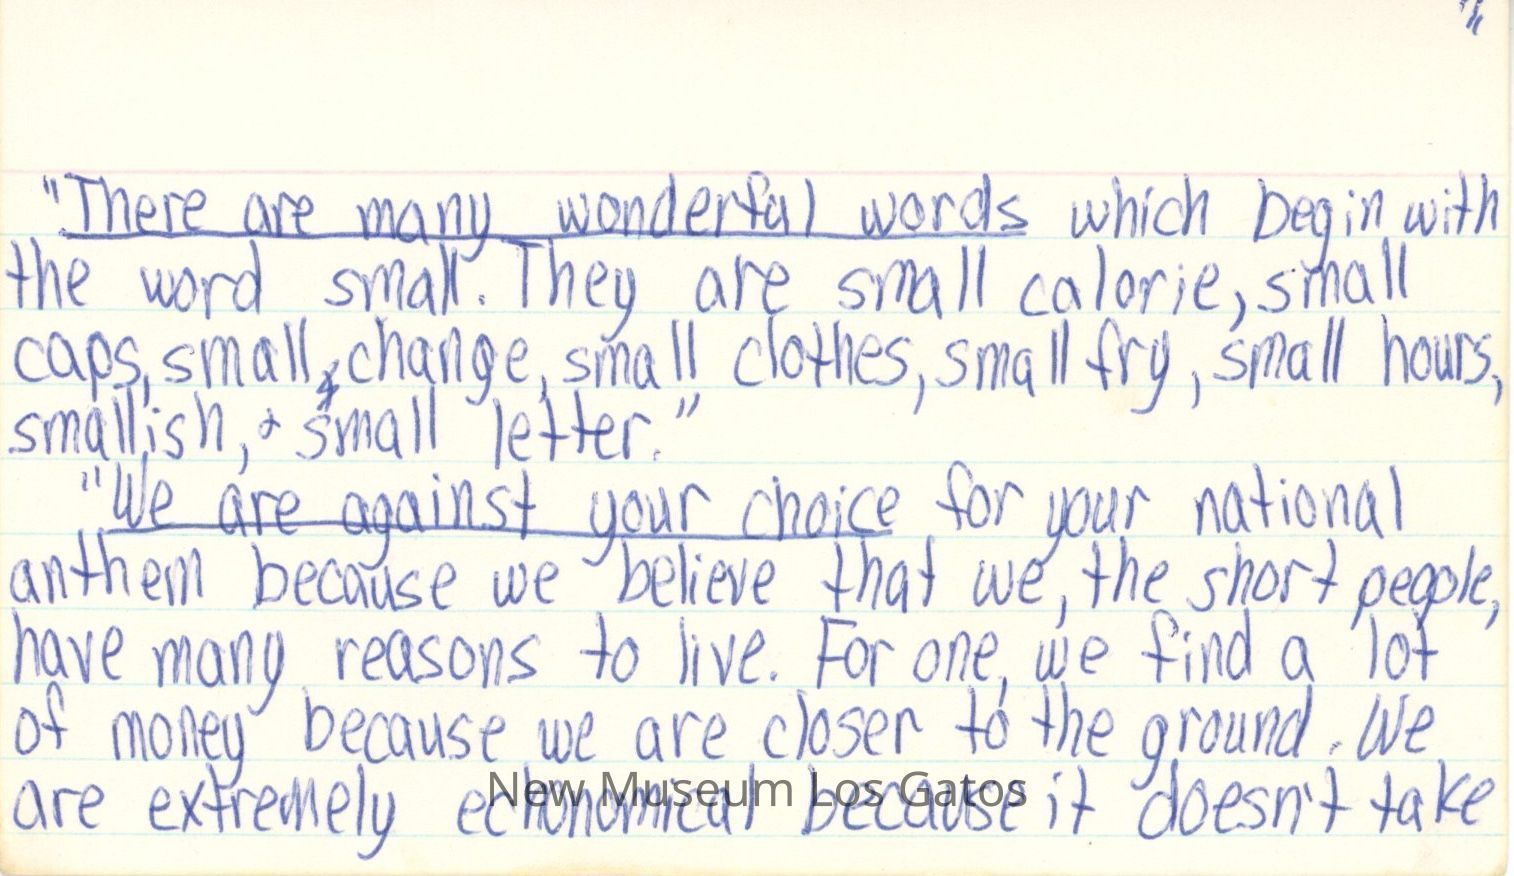 "There are many wonderful words which begin with
the word small. They are small calorie, small
caps, small change, small clothes, small fry, small hours,
smallish, & small letter."
"We are against your choice for your national
anthem because we believe that we, the short people,
have many reasons to live. For one, we find a lot
of money because we are closer to the ground. We
are extremely echonomical because it doesn't take
New Museum Los Gatos